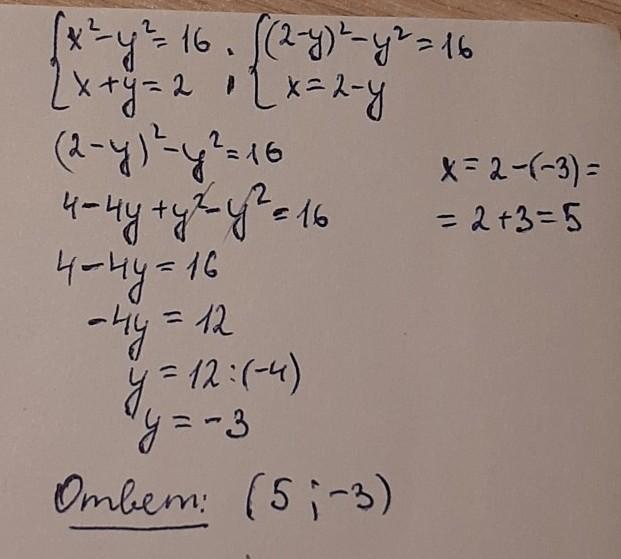 {x² - y² = 16 ; {(2-y)² - y² = 16
{x + y = 2 {x = 2 - y
(2-y)² - y² = 16
4 - 4y + y² - y² = 16
4 - 4y = 16
-4y = 12
y = 12 : (-4)
y = -3
x = 2 - (-3) =
= 2 + 3 = 5
Ответ: (5 ; -3)